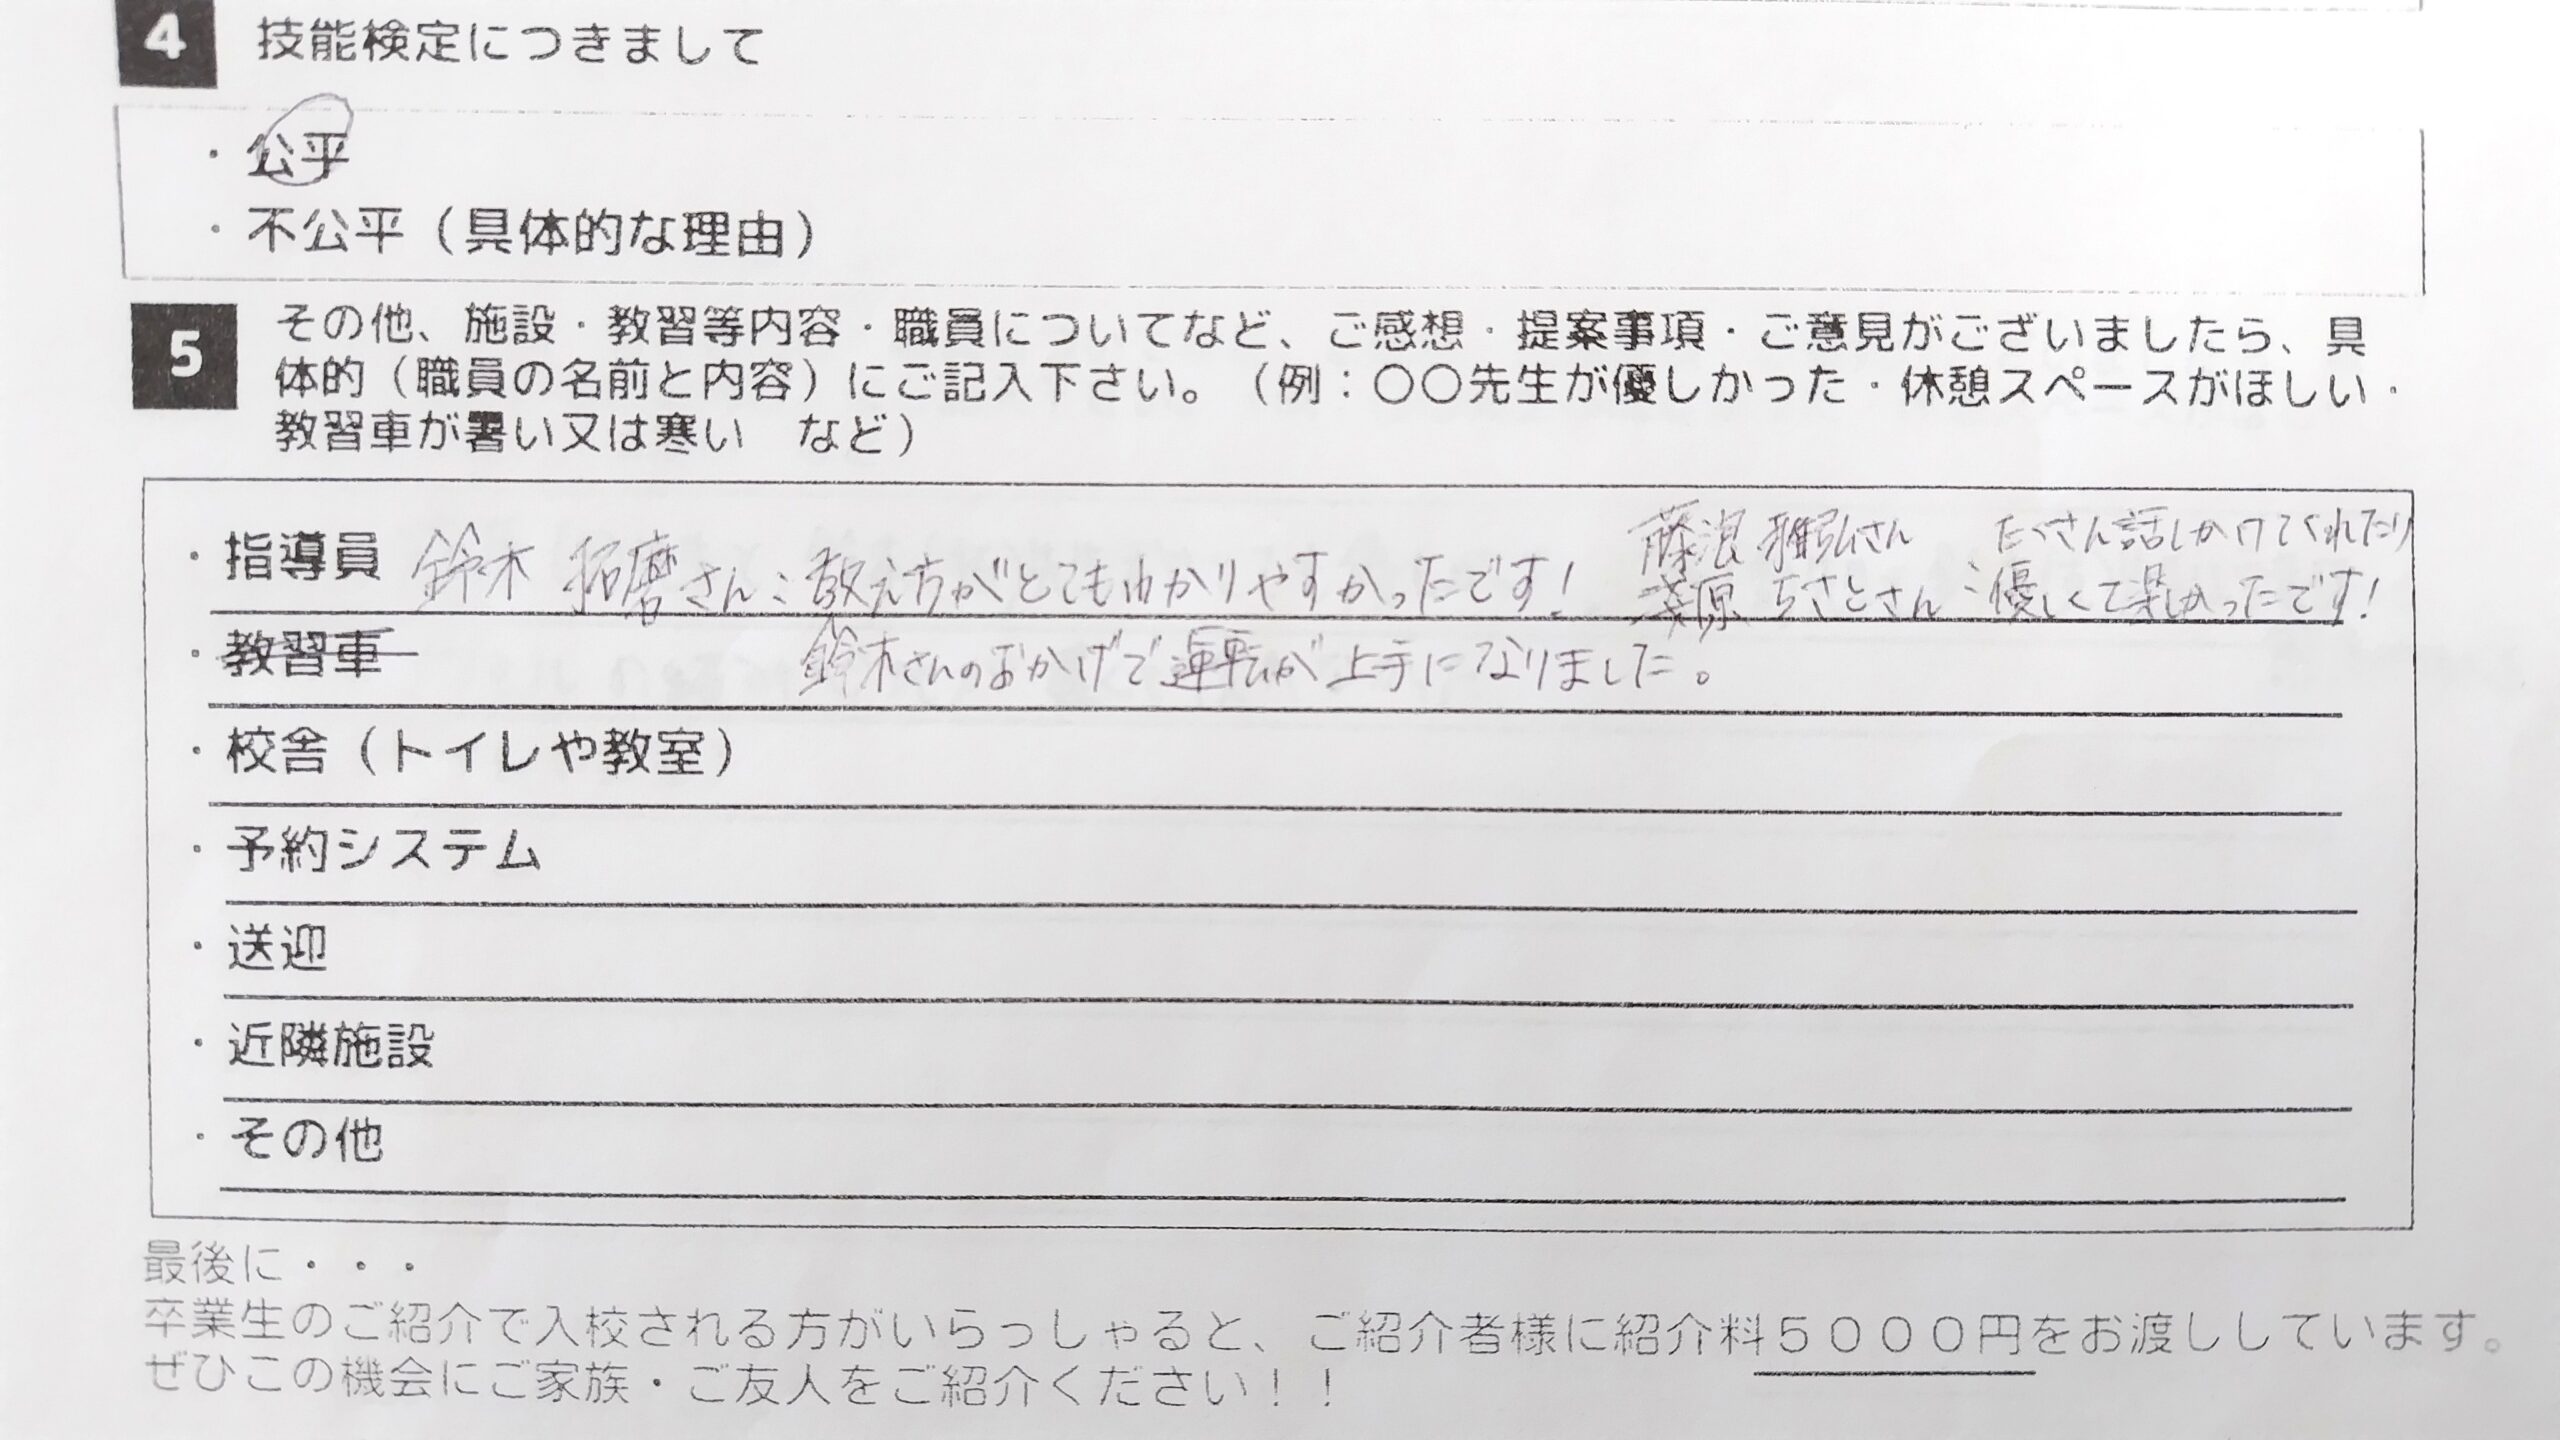 4 技能検定につきまして
・公平
・不公平（具体的な理由）
5 その他、施設・教習等内容・職員についてなど、ご感想・提案事項・ご意見がございましたら、具
体的（職員の名前と内容）にご記入下さい。（例：〇〇先生が優しかった・休憩スペースがほしい・
教習車が暑い又は寒い　など）
・指導員 鈴木 拓磨さん：教え方がとてもわかりやすかったです！
藤浪 雅弘さん たくさん話しかけてくれたり
淺原 ちさとさん：優しくて楽しかったです！
・教習車 鈴木さんのおかげで運転が上手になりました。
・校舎（トイレや教室）
・予約システム
・送迎
・近隣施設
・その他
最後に・・・
卒業生のご紹介で入校される方がいらっしゃると、ご紹介者様に紹介料５０００円をお渡ししています。
ぜひこの機会にご家族・ご友人をご紹介ください！！